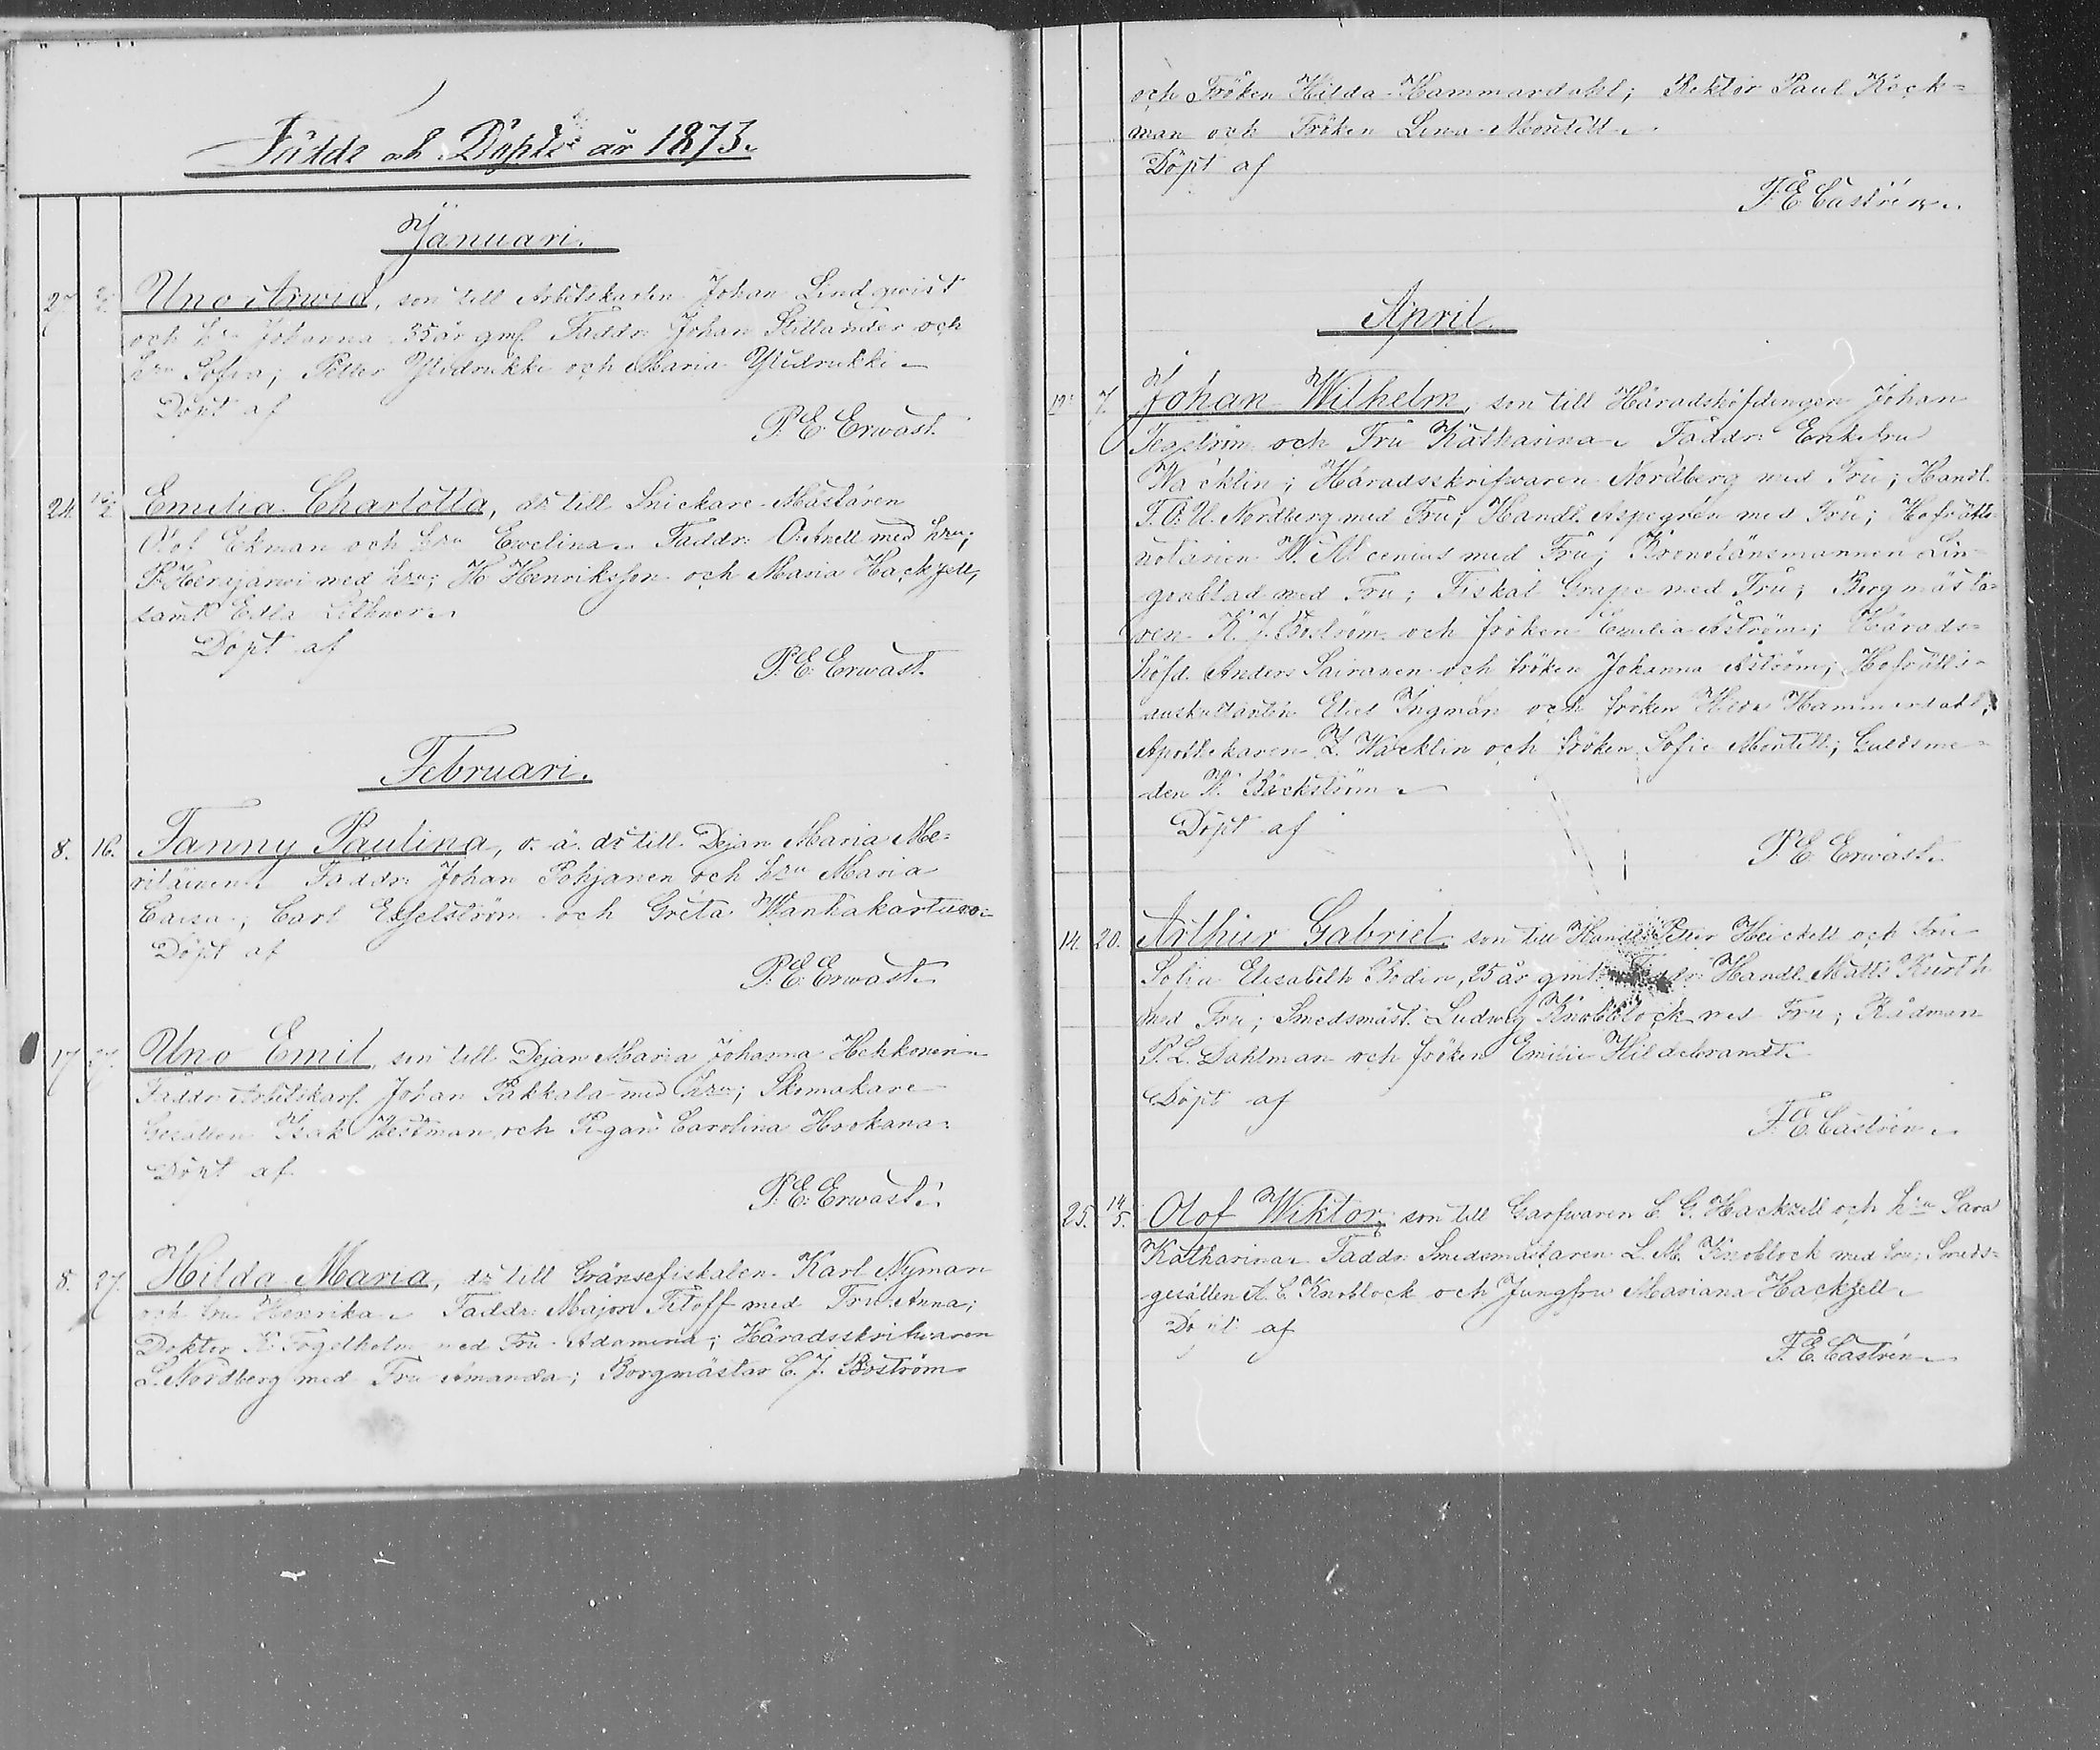 Födde och Döpte år 1873.
Januari.
27. 2/2. Uno Arwid, son till Arbetskarlen Johan Lindqwist
och hru Johanna 35 år gml. Faddr: Johan Stillander och
hru Sofia; Petter Ylidrukki och Maria Ylidrukki
Döpt af
P. E. Erwast.
24. Emilia Charlotta, dr till Snickare-Mästaren
Olof Ekman och hru Ewelina. Faddr: O. Anell med hru;
P. Herajärwi med hru; H. Henriksson och Maria Hackzell,
samt Edla
Döpt af
P. E. Erwast.
Februari.
8. 16. Fanny Paulina, o. ä. dr till Dejan Maria Me-
riläinen. Faddr: Johan Pohjanen och hru Maria
Caisa; Carl och Greta
Döpt af
P. E. Erwast.
17. 27. Uno Emil, son till Dejan Maria Johanna Hekkonen
Faddr: Arbetskarl. Johan Pakkala med hru; Skomakare
Gesällen Isak Westman och Pigan Carolina Hookana.
Döpt af
P. E. Erwast.
8. 27. Hilda Maria, dr till Gränsefiskalen Karl Nyman
och fru Henrika. Faddr: Major Titoff med Fru Anna;
Doktor K. Fogelholm med Fru Adamina; Häradsskrifvaren
L. Nordberg med Fru Amanda; Borgmästar C. J. Boström
och Fröken Hilda Hammardahl; Rektor Paul Röck-
man och Fröken Lina Montell.
Döpt af
F. E. Castrén.
April.
7. Johan Wilhelm, son till Häradshöfdingen Johan
Fegström och Fru Katharina. Faddr: Enkefru
Wacklin; Häradsskrifwaren Nordberg med Fru; Handl.
F. O. U. Nordberg med Fru; Handl. Aspegrén med Fru; Hofrätts-
notarien W. Alcenius med Fru; Kronolänsmannen Lin-
genblad med Fru; Fiskal Grape med Fru; Borgmästa-
ren K. J. Boström och fröken Emilia Åström; Härads-
höfd. Anders Sairanen och fröken Johanna Åström; Hofrätts-
auskultanten Eliel Ingman och fröken Hilda Hammardahl;
Apothekaren Z. Wacklin och fröken Sofie Montell; Guldsme-
den W. Bäckström
Döpt af
P. E. Erwast.
14. 20. Arthur Gabriel son till Handl. Petter Heickell och Fru
Sofia Elisabeth Bodin, 25 år gml. Faddr: Handl. Matts Kurth
med Fru; Smedsmäst. Ludwig Knoblock med Fru; Rådman
P. L. Dahlman och fröken Emilie Hildebrandt
Döpt af
F. E. Castrén.
25. 14/5. Olof Wiktor, son till Garfwaren C. G. Hackzell och hru Sara
Katharina. Faddr: Smedsmästaren L. M. Knoblock med fru; Smeds-
gesällen A. C. Knoblock och Jungfru Mariana Hackzell.
Döpt af
F. E. Castrén